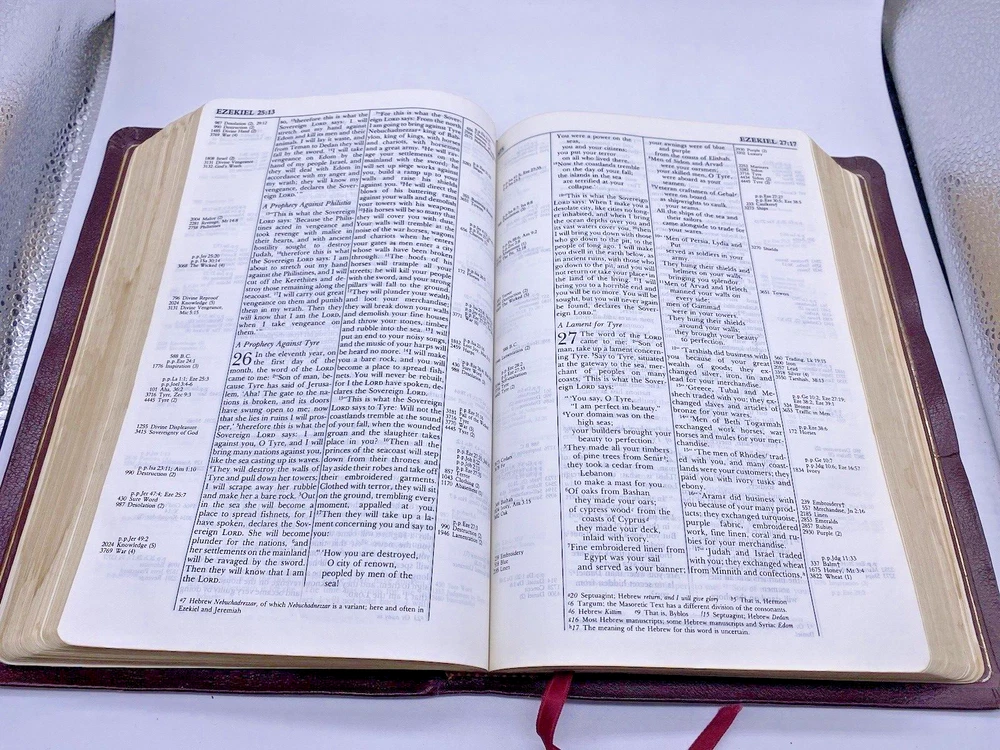 EZEKIEL 25:13
987 Desolation (2), 29:12
990 Destruction (2)
1808 Israel (2)
3131 Divine Vengeance
3132 God's Wrath
2004 Malice (2)
796 Divine Reproof
2024 Knowledge (5)
3131 Divine Vengeance,
588 B.C.
p.p Eze 24:1
1776 Inspiration (3)
101 Aha, 36:2
3716 Tyre, Zec 9:3
4445 Tyre (2)
1255 Divine Displeasure
3415 Sovereignty of God
p.p Isa 23:11; Am 1:10
990 Destruction (2)
p.p Jer 47:4; Eze 25:7
430 Sure Word
987 Desolation (2)
p.p Jer 49:2
2024 Knowledge (5)
3769 War (4)
so, ¹³therefore this is what the
Sovereign LORD says: I will
stretch out my hand against
Edom and kill its men and their
animals. I will lay it waste, and
from Teman to Dedan they will
fall by the sword. ¹⁴I will take
vengeance on Edom by the
hand of my people Israel, and
they will deal with Edom in
accordance with my anger and
my wrath; they will know my
vengeance, declares the Sover-
eign LORD.' "
A Prophecy Against Philistia
¹⁵"This is what the Sovereign
LORD says: 'Because the Philis-
tines acted in vengeance and
took revenge with malice in
their hearts, and with ancient
hostility sought to destroy
Judah, ¹⁶therefore this is what
the Sovereign LORD says: I am
about to stretch out my hand
against the Philistines, and I will
cut off the Kerethites and de-
stroy those remaining along the
seacoast. ¹⁷I will carry out great
vengeance on them and punish
them in my wrath. Then they
will know that I am the LORD,
when I take vengeance on
them.' "
A Prophecy Against Tyre
26 In the eleventh year, on
the first day of the
month, the word of the LORD
came to me: ²"Son of man, be-
cause Tyre has said of Jerusa-
lem, 'Aha! The gate to the na-
tions is broken, and its doors
have swung open to me; now
that she lies in ruins I will pros-
per,' ³therefore this is what the
Sovereign LORD says: I am
against you, O Tyre, and I will
bring many nations against you,
like the sea casting up its waves.
⁴They will destroy the walls of
Tyre and pull down her towers;
I will scrape away her rubble
and make her a bare rock. ⁵Out
in the sea she will become a
place to spread fishnets, for I
have spoken, declares the Sov-
ereign LORD. She will become
plunder for the nations, ⁶and
her settlements on the mainland
will be ravaged by the sword.
Then they will know that I am
the LORD.
⁷"For this is what the Sover-
eign LORD says: From the north
I am going to bring against Tyre
Nebuchadnezzar king of Baby-
lon, king of kings, with horses
and chariots, with horsemen
and a great army. ⁸He will rav-
age your settlements on the
mainland with the sword; he
will set up siege works against
you, build a ramp up to your
walls and raise his shields
against you. ⁹He will direct the
blows of his battering rams
against your walls and demolish
your towers with his weapons.
¹⁰His horses will be so many that
they will cover you with dust.
Your walls will tremble at the
noise of the war horses, wagons
and chariots when he enters
your gates as men enter a city
whose walls have been broken
through. ¹¹The hoofs of his
horses will trample all your
streets; he will kill your people
with the sword, and your strong
pillars will fall to the ground.
¹²They will plunder your wealth
and loot your merchandise;
they will break down your walls
and demolish your fine houses
and throw your stones, timber
and rubble into the sea. ¹³I will
put an end to your noisy songs,
and the music of your harps will
be heard no more. ¹⁴I will make
you a bare rock, and you will
become a place to spread fish-
nets. You will never be rebuilt,
for I the LORD have spoken, de-
clares the Sovereign LORD.
¹⁵"This is what the Sovereign
LORD says to Tyre: Will not the
coastlands tremble at the sound
of your fall, when the wounded
groan and the slaughter takes
place in you? ¹⁶Then all the
princes of the seacoast will step
down from their thrones and
lay aside their robes and take off
their embroidered garments.
Clothed with terror, they will sit
on the ground, trembling every
moment, appalled at you.
¹⁷Then they will take up a la-
ment concerning you and say to
you:
" 'How you are destroyed,
O city of renown,
peopled by men of the
sea!
ᵃ7 Hebrew Nebuchadrezzar, of which Nebuchadnezzar is a variant; here and often in
Ezekiel and Jeremiah
EZEKIEL 27:17
You were a power on the
seas,
you and your citizens;
you put your terror
on all who lived there.
¹⁸Now the coastlands tremble
on the day of your fall;
the islands in the sea
are terrified at your
collapse.'
¹⁹"This is what the Sovereign
LORD says: When I make you a
desolate city, like cities no long-
er inhabited, and when I bring
the ocean depths over you and
its vast waters cover you, ²⁰then
I will bring you down with those
who go down to the pit, to the
people of long ago. I will make
you dwell in the earth below, as
in ancient ruins, with those who
go down to the pit, and you will
not return or take your place in
the land of the living. ²¹I will
bring you to a horrible end and
you will be no more. You will be
sought, but you will never again
be found, declares the Sover-
eign LORD."
A Lament for Tyre
27 The word of the LORD
came to me: ²"Son of
man, take up a lament concern-
ing Tyre. ³Say to Tyre, situated
at the gateway to the sea, mer-
chant of peoples on many
coasts, 'This is what the Sover-
eign LORD says:
" 'You say, O Tyre,
"I am perfect in beauty."
⁴Your domain was on the
high seas;
your builders brought your
beauty to perfection.
⁵They made all your timbers
of pine trees from Senir;
they took a cedar from
Lebanon
to make a mast for you.
⁶Of oaks from Bashan
they made your oars;
of cypress wood from the
coasts of Cyprus
they made your deck,
inlaid with ivory.
⁷Fine embroidered linen from
Egypt was your sail
and served as your banner;
your awnings were of blue
and purple
from the coasts of Elishah.
⁸Men of Sidon and Arvad
were your oarsmen;
your skilled men, O Tyre,
were aboard as your
seamen.
⁹Veteran craftsmen of Gebal
were on board
as shipwrights to caulk
your seams.
All the ships of the sea and
their sailors
came alongside to trade for
your wares.
¹⁰" 'Men of Persia, Lydia and
Put
served as soldiers in your
army.
They hung their shields and
helmets on your walls,
bringing you splendor.
¹¹Men of Arvad and Helech
manned your walls on
every side;
men of Gammad
were in your towers.
They hung their shields
around your walls;
they brought your beauty
to perfection.
¹²" 'Tarshish did business with
you because of your great
wealth of goods; they ex-
changed silver, iron, tin and
lead for your merchandise.
¹³" 'Greece, Tubal and Me-
shech traded with you; they ex-
changed slaves and articles of
bronze for your wares.
¹⁴" 'Men of Beth Togarmah
exchanged work horses, war
horses and mules for your mer-
chandise.
¹⁵" 'The men of Rhodes traded
with you, and many coast-
lands were your customers; they
paid you with ivory tusks and
ebony.
¹⁶" 'Aram did business with
you because of your many prod-
ucts; they exchanged turquoise,
purple fabric, embroidered
work, fine linen, coral and ru-
bies for your merchandise.
¹⁷" 'Judah and Israel traded
with you; they exchanged wheat
from Minnith and confections,
2270 Shields
3651 Towers
560 Trading, Lk 19:15
3350 Tarshish, 38:13
172 Horses
p.p Ge 10:7
1834 Ivory
239 Embroidery
557 Merchandise, Jn 2:16
2185 Linen
2853 Emeralds
2857 Rubies
2930 Purple (2)
p.p Jdg 11:33
337 Balm
1675 Honey, Mt 3:4
3822 Wheat (1)
ᵃ20 Septuagint; Hebrew return, and I will give glory ᵇ5 That is, Hermon
ᶜ6 Targum; the Masoretic Text has a different division of the consonants.
ᵈ6 Hebrew Kittim ᵉ9 That is, Byblos ᶠ15 Septuagint; Hebrew Dedan
ᵍ16 Most Hebrew manuscripts; some Hebrew manuscripts and Syriac Edom
ʰ17 The meaning of the Hebrew for this word is uncertain.